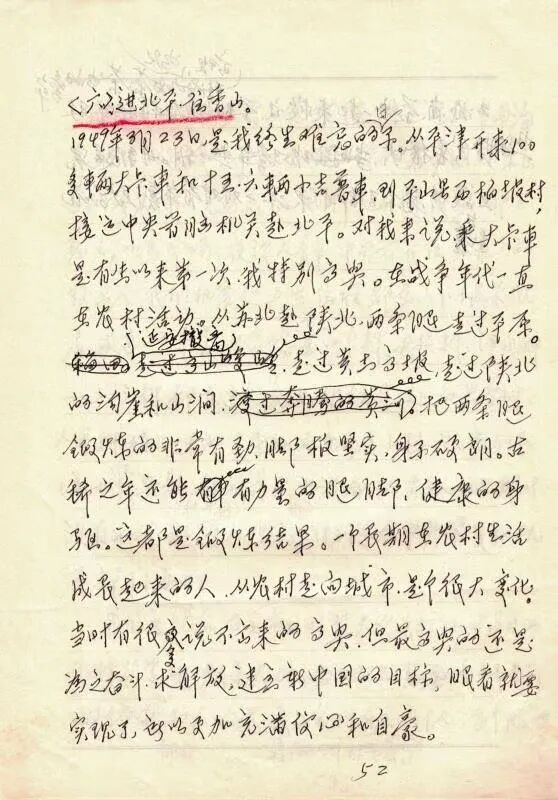 〈六〉进北平住香山。
1949年3月23日,是我终生难忘的日。从平津开来100
多辆大卡车和十五六辆小吉普车,到平山县西柏坡村,
接送中央首脑机关赴北平。对我来说乘大卡车
是有生以来第一次,我特别高兴。在战争年代一直
在农村活动。从苏北赴陕北,两条腿走过平原。
走过黄土高坡,走过陕北
的沟崖和山涧,渡过奔腾的黄河。把两条腿
锻炼的非常有劲,脚板坚实,身子硬朗。古
稀之年还能有力量的腿脚,健康的身
躯。这都是锻炼结果。一个长期在农村生活
成长起来的人,从农村走向城市,是个很大变化。
当时有很多说不出来的高兴,但最高兴的还是
为之奋斗求解放,建立新中国的目标,眼看就要
实现了,所以更加充满信心和自豪。
52